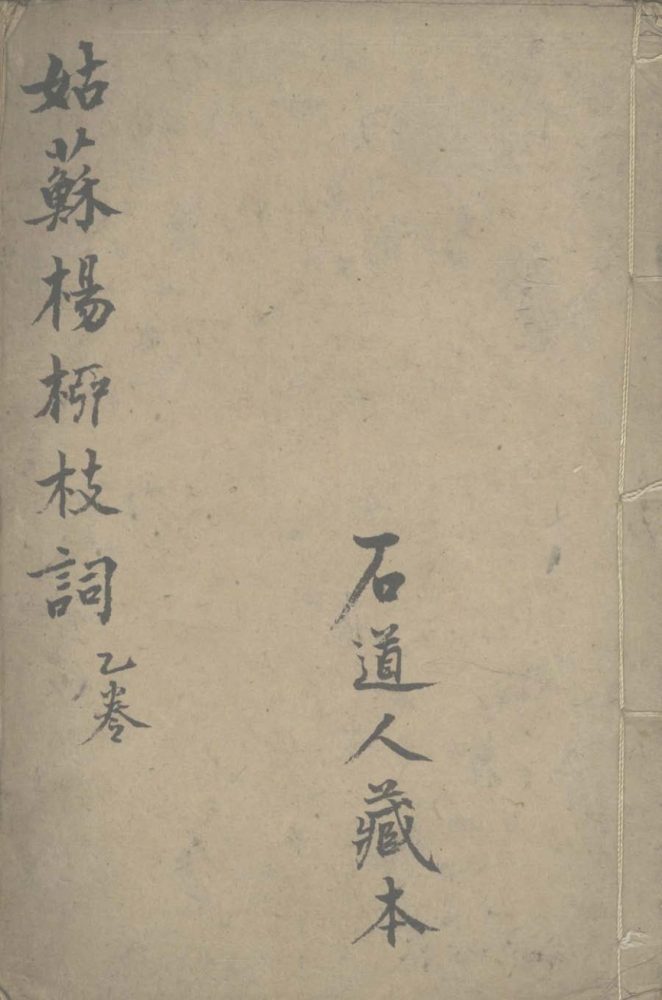 石道人藏本
姑蘇楊桺枝詞 乙卷